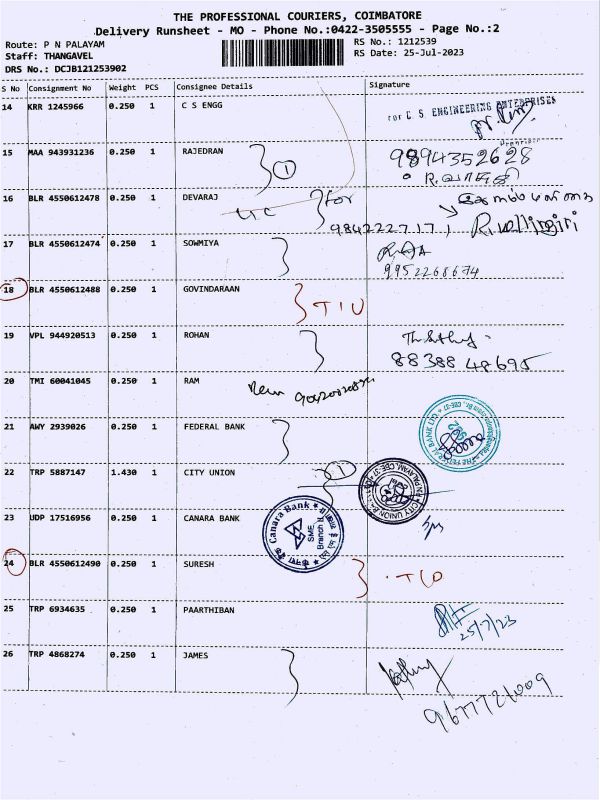 THE PROFESSIONAL COURIERS, COIMBATORE
Delivery Runsheet - MO - Phone No.:0422-3505555 - Page No.:2
Route: P N PALAYAM
RS No.: 1212539
Staff: THANGAVEL
RS Date: 25-Jul-2023
DRS No.: DCJB121253902
S No Consignment No Weight PCS Consignee Details Signature
14 KRR 1245966 0.250 1 C S ENGG
for C S ENGINEERING ENTERPRISES
15 MAA 943931236 0.250 1 RAJEDRAN 1 9894352628
16 BLR 4550612478 0.250 1 DEVARAJ for
984222717,
17 BLR 4550612474 0.250 1 SOWMIYA
9952268674
18 BLR 4550612488 0.250 1 GOVINDARAAN
19 VPL 944920513 0.250 1 ROHAN
88388 48695
20 TMI 60041045 0.250 1 RAM
21 AWY 2939026 0.250 1 FEDERAL BANK
22 TRP 5887147 1.430 1 CITY UNION 1
23 UDP 17516956 0.250 1 CANARA BANK
Canara Bank
SME
Branch
24 BLR 4550612490 0.250 1 SURESH
25 TRP 6934635 0.250 1 PAARTHIBAN
25/7/23
26 TRP 4868274 0.250 1 JAMES